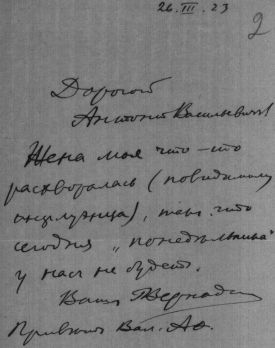 26.III.23
2
Дорогой
Антоний Васильевич
Жена моя что-то
расхворалась (повидимому
инфлуэнца), так что
сегодня „понедельника"
у нас не будет.
Ваш
Привет Вал. Ад.